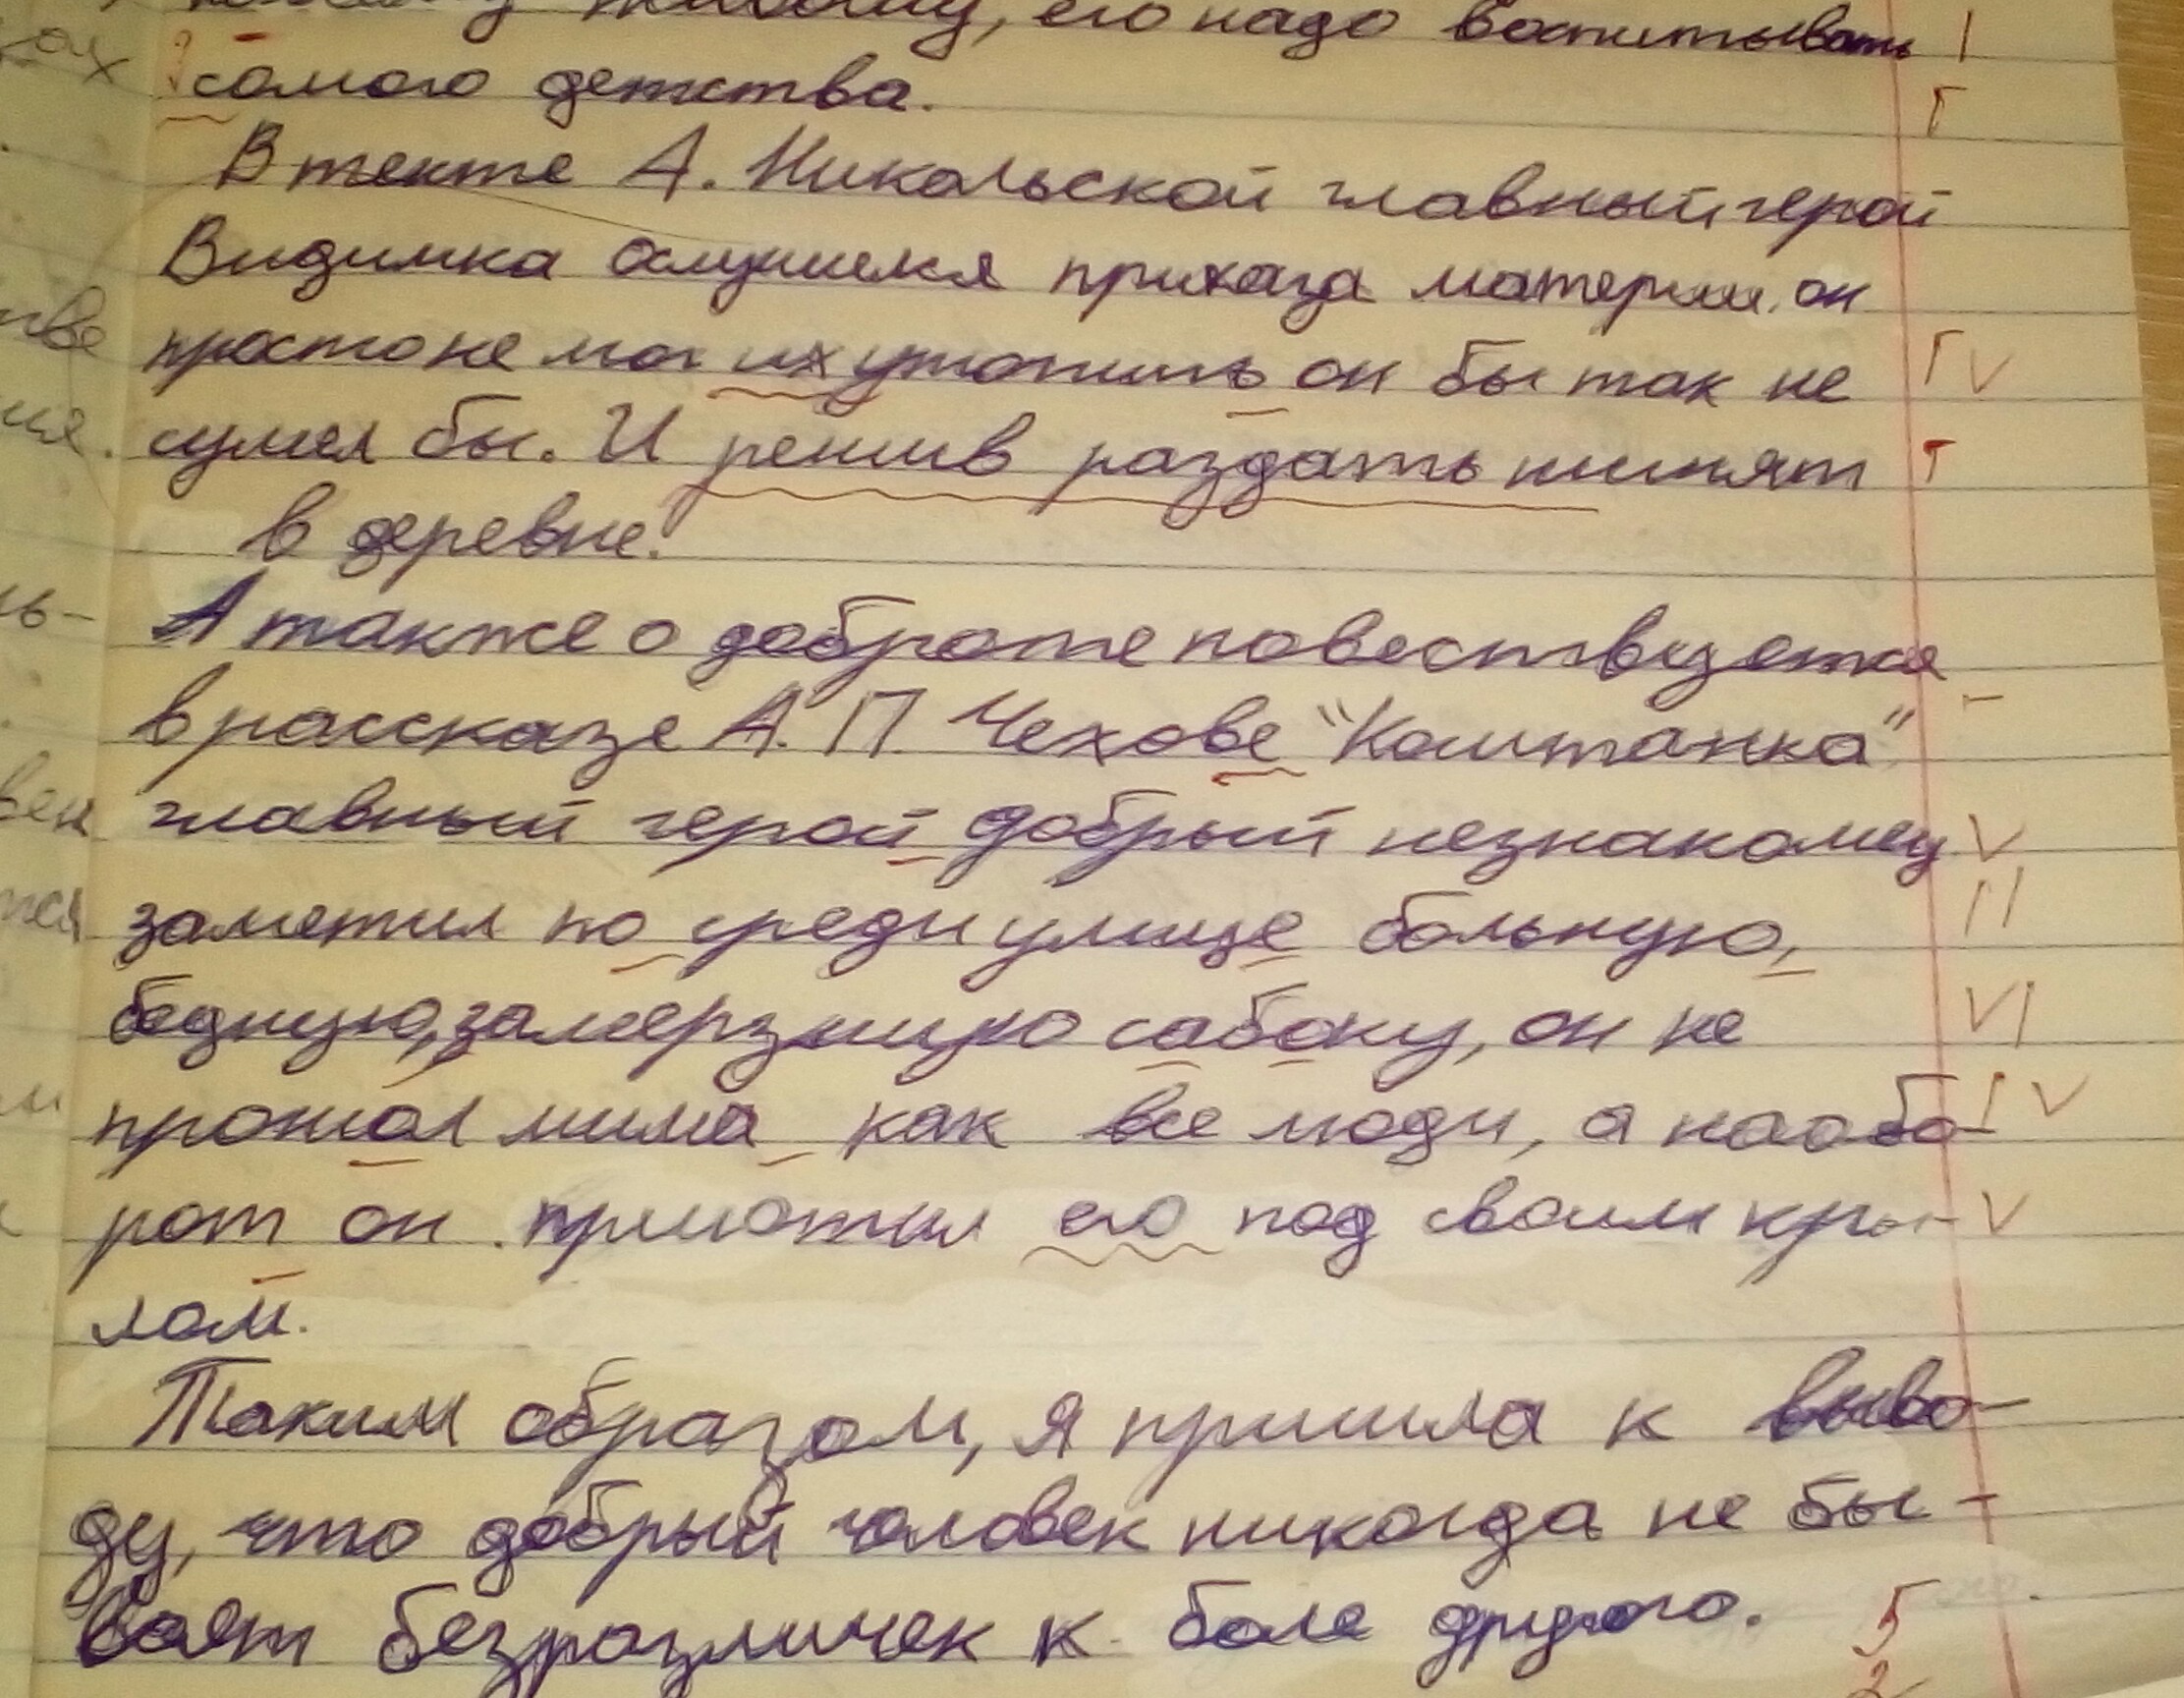 живому, его надо воспитывать
самого детства.
В тексте А. Никольской главный герой
Видимка ослушился приказа матери, он
просто не мог их утопить он бы так не
сумел бы. И решив раздать щинят
в деревне.
А также о доброте повествуется
в рассказе А. П. Чехове "Каштанка"
главный герой добрый незнакомец
заметил по среди улице больную,
бедную, замёрзшую сабоку, он не
прошол мима как все люди, а наобо-
рот он приютил его под своим кры-
лом.
Таким образом, я пришла к выво-
ду, что добрый человек никогда не бы-
вает безразличен к боле другого.
5
2